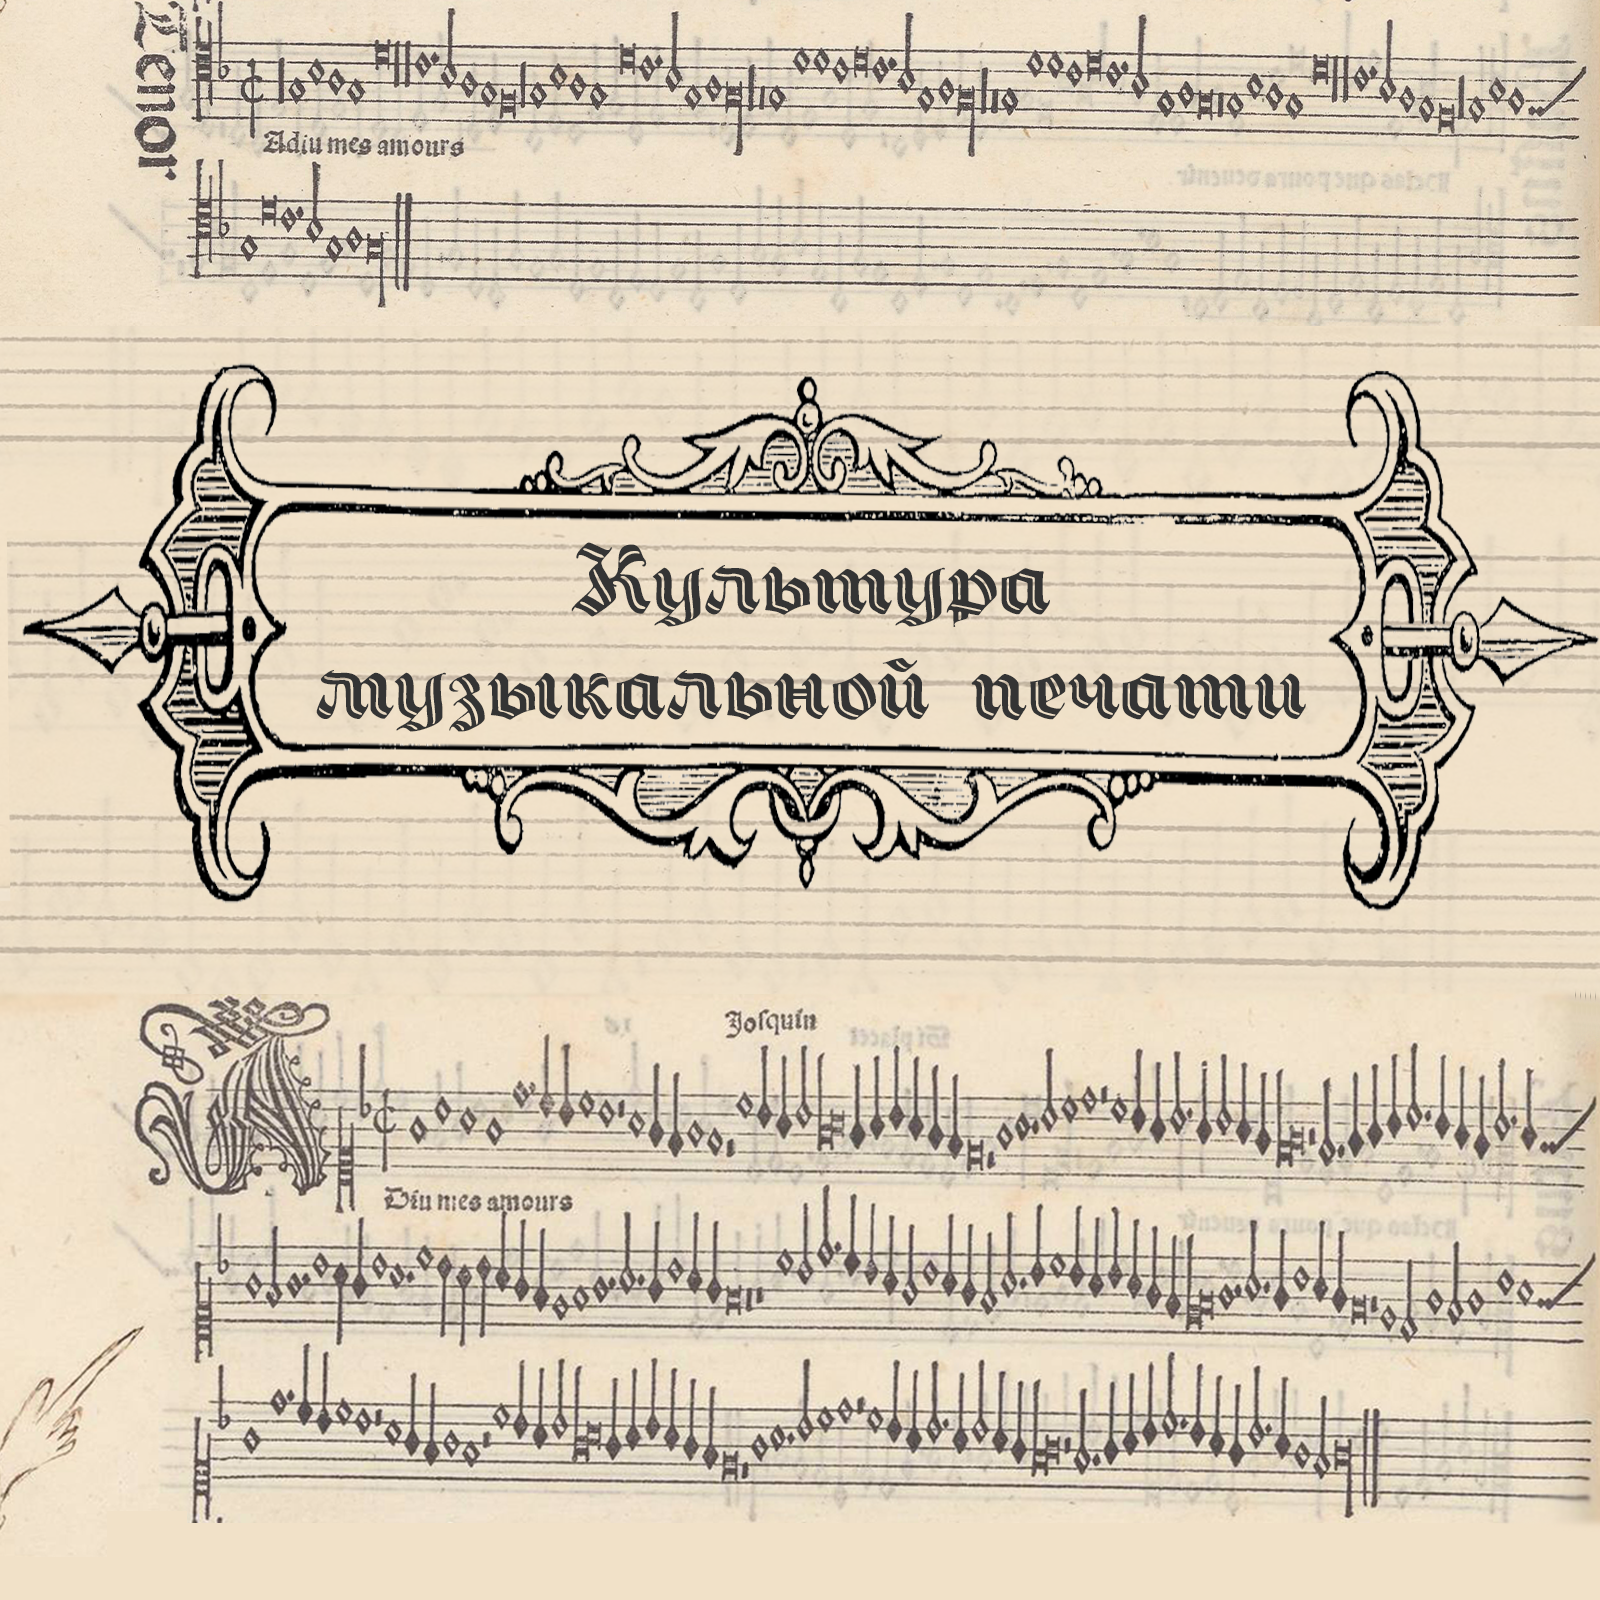 Tenor
Adiu mes amours
Культура
музыкальной печати
Josquin
Diu mes amours